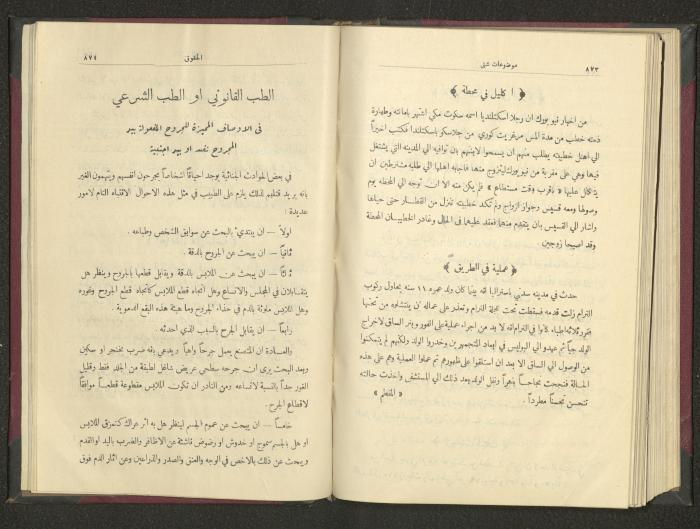 ٨٧٣
موضوعات شتى
﴿ اكليل في محطة ﴾
من اخبار نيويورك ان رجلا اسكتلنديا اسمه سكوت مكي اشتهر بامانته وطهارة
ذمته خطب من مدة المس مرغريت كوري من جلاسكو باسكتلندا فكتب اخيراً
الى اهل خطيبته يطلب منهم ان يسمحوا لابنتهم بان توافيه الى المدينه التي يشتغل
فيها وهي على مقربة من نيويورك ليتزوج منها فاجابه اهلها الى طلبه مشترطين ان
يتكلل عليها « باقرب وقت مستطاع » فلم يكن منه الا ان توجه الى المحطه يوم
وصولها ومعه قسيس وجواز الزواج ولم تكد خطيبته تنزل من القطار حتى حياها
واشار الى القسيس بان يتقدم منها فعقد عليهما في الحال وغادر الخطيبان المحطة
وقد اصبحا زوجين
﴿ عملية في الطريق ﴾
حدث في مدينه سدني باستراليا انه بينما كان ولد عمره ١١ سنه يحاول ركوب
الترام زلت قدمه فسقطت تحت عجلة الترام وتعذر على عماله ان ينتشلوه من تحتها
فقرر ثلاثه اطباء كانوا في الترام انه لا بد من اجراء عملية على الفور وبتر الساق لاخراج
الولد حياً ثم عهدوا الى البوليس في ابعاد المتجمهرين وخدروا الولد ولكنهم لم يتمكنوا
من الوصول الى الساق الا بعد ان استلقوا على ظهورهم ثم عملوا العملية وهم على هذه
الحالة فنجحت نجاحاً باهراً ونقل الولد بعد ذلك الى المستشفى واخذت حالته
تتحسن تحسناً مطرداً .
« المقطم »
الحقوق
٨٧٤
الطب القانوني او الطب الشرعي
فى الاوصاف المميزة للجروح المفعولة بيد
المجروح نفسه او بيد اجنبية
في بعض الحوادث الجنائية يوجد احياناً اشخاصاً يجرحون انفسهم ويتهمون الغير
بانه يريد قتلهم لذلك يلزم على الطبيب في مثل هذه الاحوال الانتباه التام لامور
عديدة :
اولاً — ان يبتدئ بالبحث عن سوابق الشخص وطباعه .
ثانياً — ان يبحث عن الجروح بالدقة .
ثالثاً — ان يبحث عن الملابس بالدقة ويقابل قطعها بالجروح وينظر هل
يتقابلان في المجلس والاتساع وهل اتجاه قطع الملابس كاتجاه قطع الجروح وغوره
وهل الملابس ملوثة بالدم في حذاء الجروح وما هيئة هذه البقع الدموية .
رابعاً — ان يقابل الجرح بالسبب الذي احدثه .
والعادة ان المتصنع يعمل جرحاً واهياً ويدعي بانه ضرب بخنجر او سكين
وبعد البحث يرى ان جرحه سطحي عريض شاغل لطبقة من الجلد فقط وقليل
الغور جداً بالنسبة لاتساعه ومن النادر ان تكون الملابس مقطوعة قطعاً موافقاً
لاقطاع الجرح .
خامساً — ان يبحث عن عموم الجسم لينظر هل به اثر عراك كتمزق الملابس
او هل بالجسم سحوج او خدوش او رضوض ناشئة عن الاظافر والضرب باليد او القدم
ويبحث عن ذلك بالاخص في الوجه والعنق والصدر والذراعين وعن اثار الدم فوق